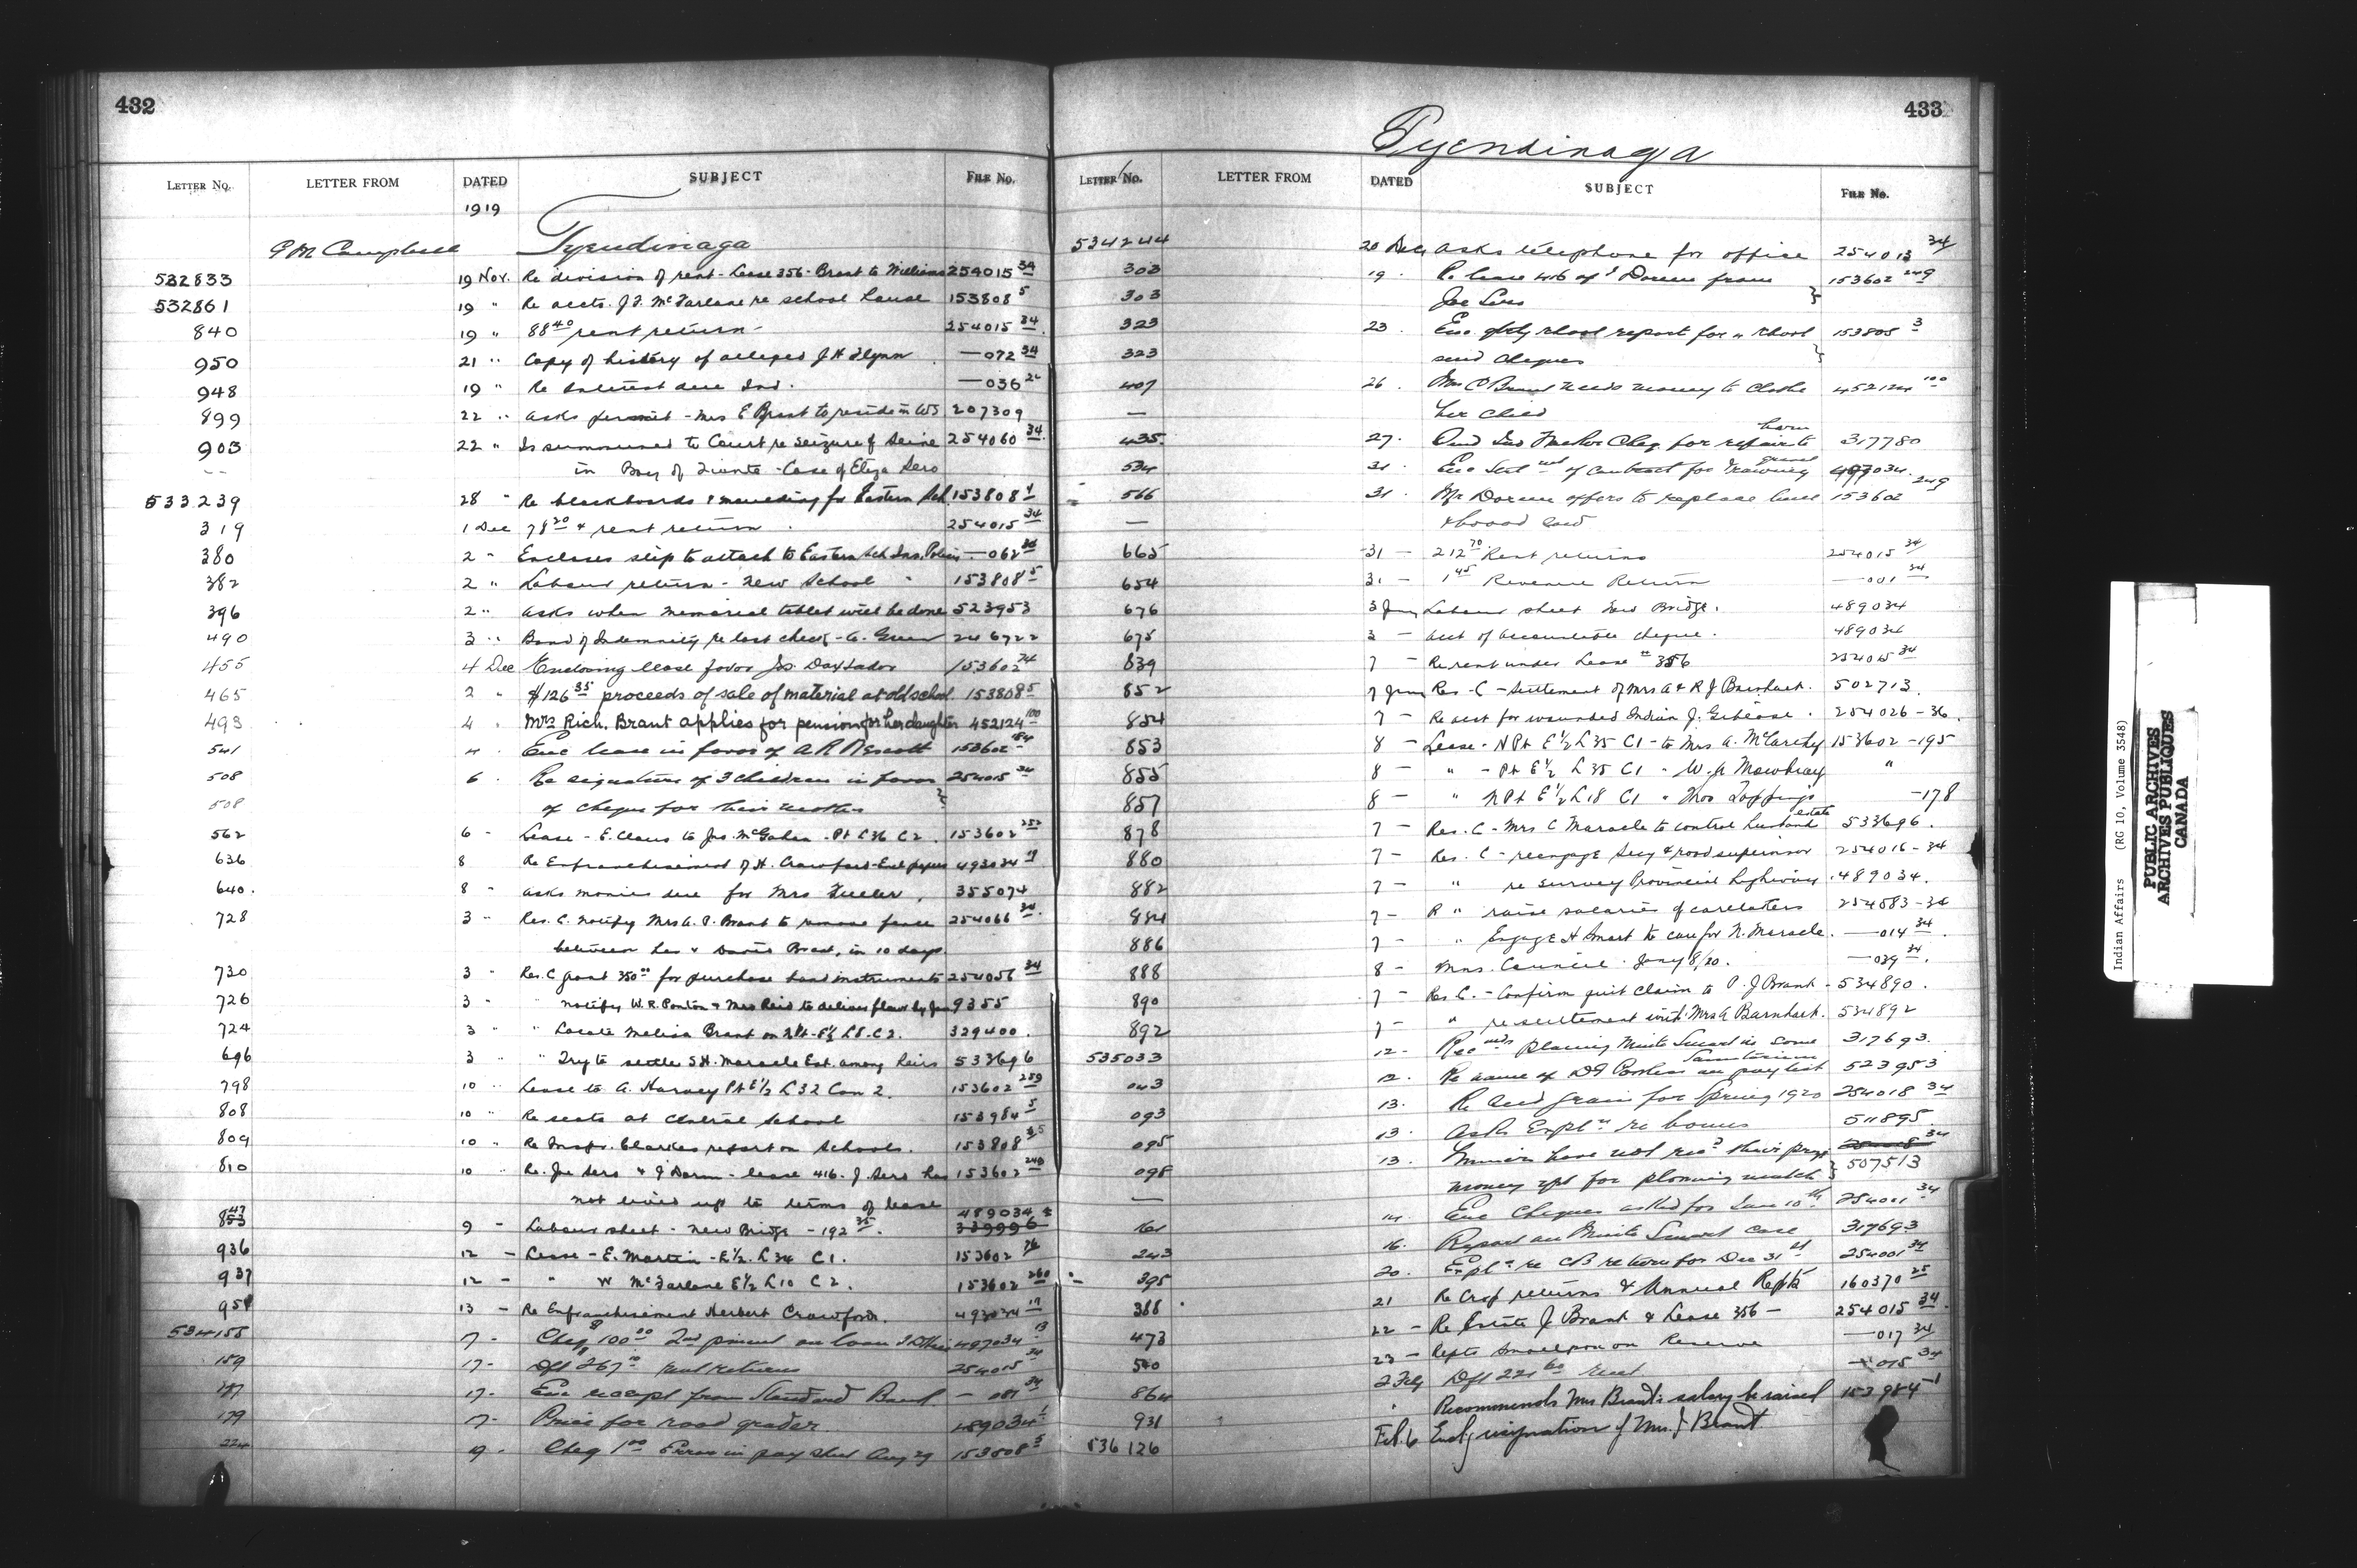 432
LETTER No. LETTER FROM DATED SUBJECT FILE No.
1919
G M Campbell Tyendinaga
532833 19 Nov. Re division of rent - Lease 356 - Brant to Williams 254015 34
532861 19 " Re accts. J. F. McFarlane re school house 153808 5
840 19 " 88 40 rent return 254015 34
950 21 " Copy of history of alleged J H Flynn — 072 34
948 19 " Re Interest due Ind. — 036
899 22 " asks permit - Mrs E Brant to reside in US 207309
903 22 " Is summoned to Court re seizure of Seine 254060 34
-- in Bay of Quinte - Case of Eliza Sero
533239 28 " Re blackboards & moulding for Eastern Sch. 153808 4
319 1 Dec 78 20 rent return 254015 34
380 2 " Encloses slip to attach to Eastern Sch. Ins. Policy — 062
382 2 " Labour return - New School 153808 5
396 2 " asks when memorial tablet will be done 523953
490 3 " Bond of Indemnity re lost check - G. Green 246722
455 4 Dec Enclosing lease favor 153602 74
465 2 " $126 35 proceeds of sale of material at old school 153808 5
493 4 " Mrs Rich. Brant applies for pension for her daughter 452124 100
541 4 " Enc lease in favor of A R 153602 184
508 6 " Re signature of 3 children in favor 254015 34
508 of cheque for their mother
562 6 " Lease - E. Claus to Jas. McGahen - Pt L36 C2. 153602 252
636 8 Re Enfranchisement of H. Crawford - Encl papers 493034 19
640. 8 " asks monies due for Mrs 355074
728 3 " Res. C. notify Mrs A. P. Brant to remove fence 254066 34
between her & David Brant, in 10 days.
730 3 " Res. C. grant 350 00 for purchase band instruments 254056 34
726 3 " " notify W. R. Ponton & Mrs Reid to deliver 9355
724 3 " " Locate Melissa Brant on E½ L8. C2. 329400
696 3 " " Try to settle S. H. Maracle Est. among heirs 533696
798 10 " Lease to A. Harvey Pt E½ L32 Con 2. 153602 259
808 10 " Re seats at Central School 153984 5
809 10 " Re Inspr. Clarkes report on Schools. 153808
810 10 " Re. Joe Sero & J Doran - lease 416. J. Sero has 153602 249
not lived up to terms of lease
9 - Labour sheet - New Bridge - 192 35. 489034 339996
936 12 - Lease - E. Martin - E½. L34 C1. 153602 76
937 12 - " W McFarlane E½ L10 C2. 153602 260
951 13 - Re Enfranchisement Herbert Crawford. 493034 19
534155 17 - Cheq $100 00 2nd on loan 497034 13
159 17 - Dft 267 rent returns 254015 34
187 17 - Enc receipt from Standard Bank — 34
179 17 - Price for road grader 489034 1
224 19 - Cheq 1 00 Error in pay sheet Aug 29 153808 5
433
Tyendinaga
LETTER No. LETTER FROM DATED SUBJECT FILE No.
534244 20 Dec asks telephone for office 254013 34
303 19 . Re lease 416 of J Doran from 153602 249
303 Joe Sero
323 23 . Enc. qtrly school report for school 153805 3
323 send cheques
407 26 . Mrs C Brant needs money to clothe 452124 100
— her child
435 27 . Cheq. for repairs to barn 317780
534 31 . Enc of contract for drawing gravel 497034
566 31 . Mr Doran offers to replace line 153602 249
— & board
665 31 — 212 70 Rent returns 254015 34
654 31 — 1 45 Revenue Return — 001 34
676 3 Jany Labour sheet New Bridge. 489034
675 3 — acct of cheque. 489034
839 7 — Re rent under Lease # 356 254015 34
852 7 Jany Res - C - Settlement of Mrs A & R J Barnhart. 502713
854 7 — Re acct for wounded Indian J. 254026 - 36
853 8 — Lease - N Pt E½ L35 C1 - to Mrs A. McCarthy 153602 - 195
855 8 — " - Pt E½ L35 C1 - W. A Mowbray "
857 8 — " N Pt E½ L18 C1 " Thos Toppings - 178
878 7 — Res. C - Mrs C Maracle to control husband estate 533696
880 7 — Res. C - reengage Secy & road supervisor 254016 - 34
882 7 — " re survey Provincial highway 489034
884 7 — R " raise salaries of caretakers 254583 - 34
886 7 — " Engage H Smart to care for N. Maracle. — 014 34
888 8 — Mins. Council. Jany 8/20. — 039 34
890 7 — Res C. - Confirm quit claim to P. J Brant - 534890
892 7 — " re settlement with Mrs A Barnhart. 534892
535033 12 — Recmds placing Minnie Smart in some Sanitarium 317693
043 12 . Re name of D F on pay list 523953
093 13 . Re Seed grain for Spring 1920 254018 34
095 13 . Asks Expln re bonus 511895
098 13 . have not recd their prize 507513
— money for plowing match
161 14 . Enc Cheques asked for Jan 10th 254001 34
243 16 . Report on Minnie Smart case 317693
395 20 . Expln re CB return for Dec 31st 254001 34
388 21 Re Crop returns & Annual Repts 160370 25
473 22 — Re Estate J Brant & Lease 356 — 254015 34
540 23 — Repts smallpox on Reserve — 017 34
864 2 Feby Dft 221 60 rent — 015 34
931 " Recommends Mrs Brant's salary be raised 153984 - 1
536126 Feb. 6 Encl resignation of Mrs. J Brant
Indian Affairs (RG 10, Volume 3548)
PUBLIC ARCHIVES
ARCHIVES PUBLIQUES
CANADA